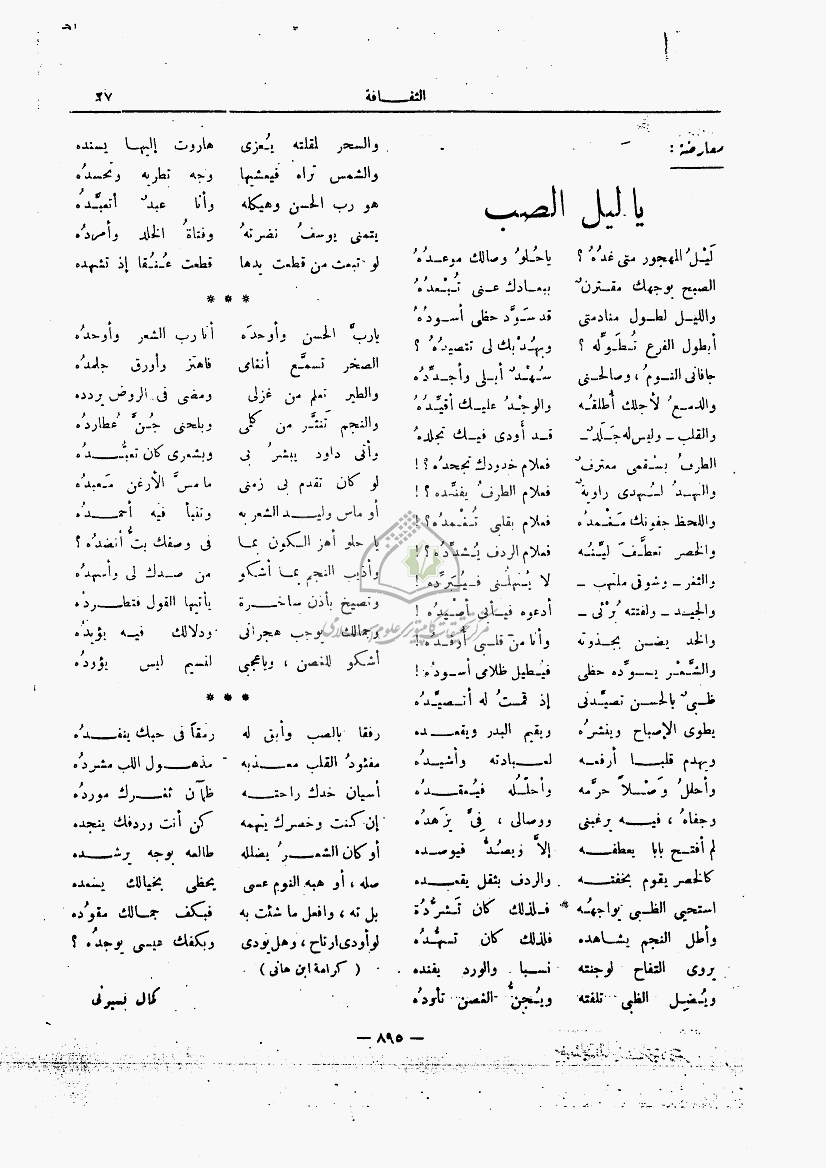 ٢٧
الثقافة
معارضة :
يا ليل الصب
لَيْلُ المهجور متى غدُهُ ؟ ياحُلوُ وصالك موعدُهُ
الصبح بوجهك مقترنٌ ببعادك عنى تُبعدُهُ
والليل لطول منادمتى قد سَوَّد حظى أسودُهُ
أبطول الفرع تُطَوِّله ؟ وبهُدْبك لى تتصيدُهُ ؟
جافانى النومُ ، وصالحنى سُهْدٌ أبلى وأجدِّدُهُ
والدمعُ لأجلك أُطلقُه والوجدُ عليك أقيِّدُهُ
والقلب ـ وليس له جَلَدٌ ـ قد أودى فيك تجلدُه
الطرفُ بسقمى معترفٌ فعلام خدودك تجحدُه ؟!
والنهد لسُهدى راويةٌ فعلام الطرفُ يفنِّده ؟!
واللحظ جفونك مَغْمدُه فعلام بقلبى تُغْمدُه ؟!
والخصر تعطَّفَ ليِّنُه فعلام الردف يُشدِّدُه ؟!
والثغر ـ وشوقى ملتهب ـ لا يُنهلُنى فيُبَرِّدُه !
والجيد ـ ولفتته بُرئى ـ أدعوه فيأبى
والخد يضن بجذوته وأنا من قلبى أُرفدُه !
والشَّعْر يسوِّده حظى فيُطيل ظلامى أسودُه !
ظبىٌ بالحسن تصيَّدنى إذ قمتُ له أتصيَّدُه
يطوى الإصباح وينشرُه ويقيم البدر ويقعده
ويهدم قلبا أرفعه لعبادته وأشيدُه
وأحللُ وَصْلاً حرّمه وأحلّله فيُعقدُه
وجفاهُ ، فيه يرغبنى ووصالى ، فِىَّ يزهدُه
لم أفتح بابا يعطفه إلاَّ وبصدٍّ فيوصده
كالخصر يقوم بخفته والردف بثقل يقعده
استحيى الظبى يواجهه فلذلك كان تَشرُّدُهُ
وأطل النجم يشاهده فلذلك كان تسهُّدُه
يروى التفاح لوجنته نسبا والورد يفنده
ويُضِل الظبى تلفته ويُجنُّ الغصن تأودُه
والسحر لمقلته يُعزى هاروت إليها يسنده
والشمس تراه فيعشيها وجه تطريه وتحسدُه
هو رب الحسن وهيكله وأنا عبدٌ أتعبَّدُهُ
يتمنى يوسفُ نضرتهُ وفتاةُ الخلد وأمردُه
لو تبعث من قطعت يدها قطعت عُنُقا إذ تشهده
* * *
ياربَّ الحسن وأوحدَه أنا رب الشعر وأوحدُه
الصخر تسمَّع أنغامى فاهتز وأورق جلمدُه
والطير تعلم من غزلى ومضى فى الروض يردده
والنجم تَنثَّر من كلمى وبلحنى جُنَّ عُطاردُه
وأنى داود يبشرُ بى وبشعرى كان تعبُّدُه
لو كان تقدم بى زمنى ما مسَّ الأرغن مَعبدُه
أو ماس وليد الشعر به وتنبأ فيه أحمدُه
يا حلو أهز الكون بما فى وصفك بتُّ أنضدُه ؟
وأذيب النجم بما أشكو من صدك لى وأسهدُه
وتصيخ بأذن ساخرة يأتيها القول فتطرده
وجمالك يوجب هجرانى ودلالك فيه يؤيدُه
أشكو للغصن ، وياعجبى لنسيم ليس يؤودُه
* * *
رفقا بالصب وأبق له رمقاً فى حبك ينفدُه
مفئودُ القلب معذبه مذهول اللب مشردُه
أسيان خدك راحته ظمآن ثغرك موردُه
إن كنت وخصرك يتهمه كن أنت وردفك ينجده
أو كان الشعرُ يضلله طالعه بوجه يرشده
صله ، أو هبه النوم عسى يحظى بخيالك يسعده
بل ته ، وافعل ما شئت به فبكف جمالك مقودُه
لو أودى ارتاح ، وهل يودى وبكفك عيسى يوجدُه ؟
( كرامة ابن هانى )
كمال نسيونى
— ٨٩٥ —